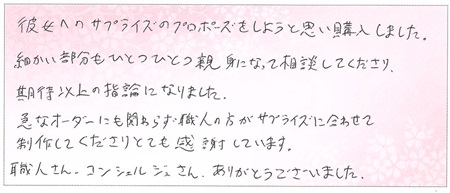 彼女へのサプライズのプロポーズをしようと思い購入しました。
細かい部分もひとつひとつ親身になって相談してくださり、
期待以上の指論になりました。
急なオーダーにも関わらず職人の方がサプライズに合わせて
制作してくださりとても感謝しています。
職人さん、コンシェルジュさん、ありがとうございました。